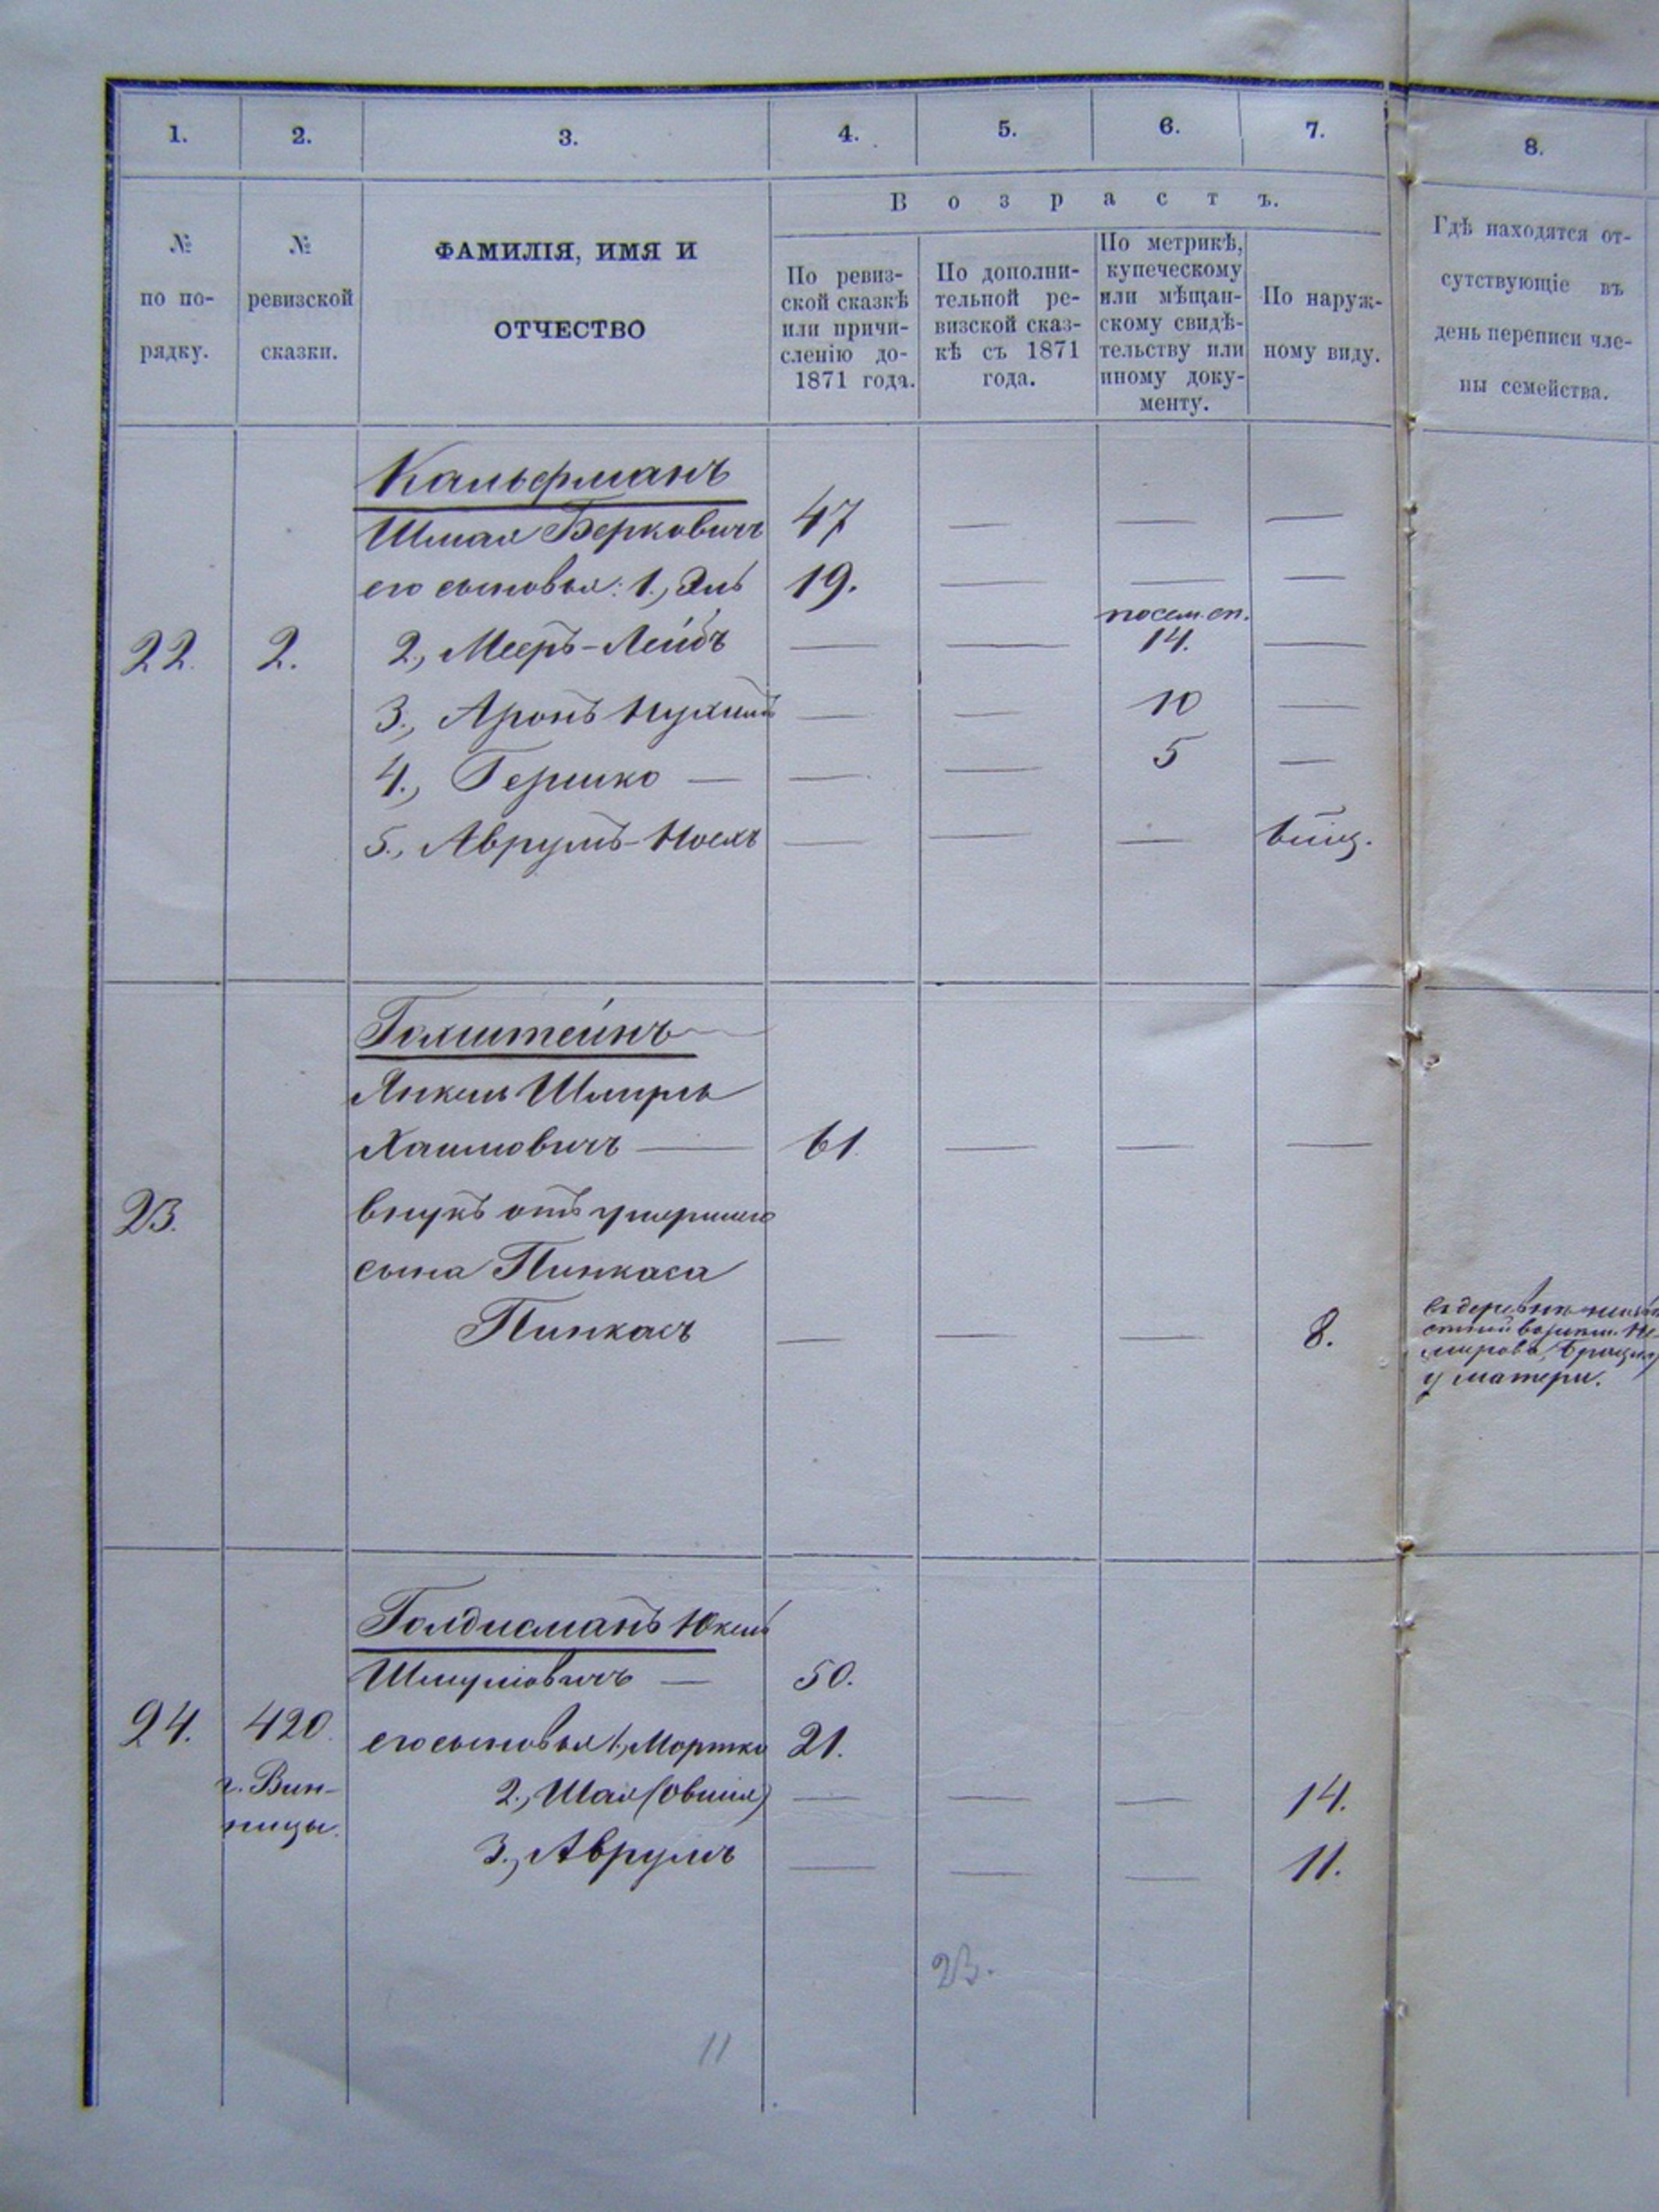 1. 2. 3. 4. 5. 6. 7. 8.
№ по по-рядку.
№ ревизской сказки.
ФАМИЛІЯ, ИМЯ И
ОТЧЕСТВО
Возрастъ.
По ревиз-
ской сказкѣ
или причи-
сленію до-
1871 года.
По дополни-
тельной ре-
визской сказ-
кѣ съ 1871
года.
По метрикѣ,
купеческому
или мѣщан-
скому свидѣ-
тельству или
иному доку-
менту.
По наруж-
ному виду.
Гдѣ находятся от-
сутствующіе въ
день переписи чле-
ны семейства.
Кальфманъ
Шмая Берковичъ 47 — — —
его сыновья: 1., Эль 19. — — —
посем. сп.
22. 2. 2., Мееръ-Лейбъ — — 14. —
3., Аронъ Нухимъ — — 10 —
4., Гершко — — — 5 —
5., Аврумъ-Носехъ — — —
Голштейнъ —
Янкель Шмуль
Хаимовичъ — 61. — — —
23. внукъ отъ умершаго
сына Пинкаса
Пинкасъ — — — 8.
у матери.
Голдисманъ Юкель
Шмулiовичъ — 50.
24. 420. его сыновья 1., Мортко 21.
г. Вин-
ницы.
2., Шая (Овшія) — — — 14.
3., Аврумъ — — — 11.
23.
11